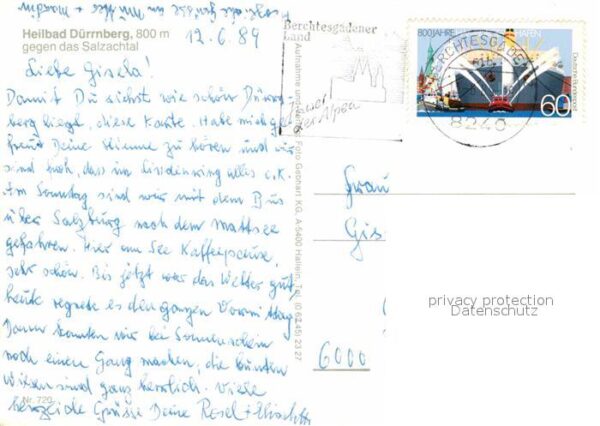 Heilbad Dürrnberg, 800 m
gegen das Salzachtal
12.6.89
Liebe Gisela!
Damit Du siehst wie schön Dürrn-
berg liegt, diese Karte. Habe mich ge-
freut Deine Stimme zu hören und wir
sind froh, dass im alles o.k.
Am Sonntag sind wir mit dem Bus
über Salzburg nach dem Mattsee
gefahren. Hier am See Kaffeepause,
sehr schön. Bis jetzt war das Wetter gut,
heute regnete es den ganzen Vormittag
Dann konnten wir bei Sonnenschein
noch einen Gang machen, die bunten
Wiesen sind ganz herrlich. Viele
herzliche Grüsse Deine Resel +
Nr. 720
Aufnahme und Foto Gebhart KG, A-5400 Hallein, Tel. (0 62 45) 23 27
Berchtesgadener
Land
Insel
der Alpen
BERCHTESGADEN
8240
800 JAHRE HAFEN
Deutsche Bundespost
60
Frau
Gis
6000
privacy protection
Datenschutz